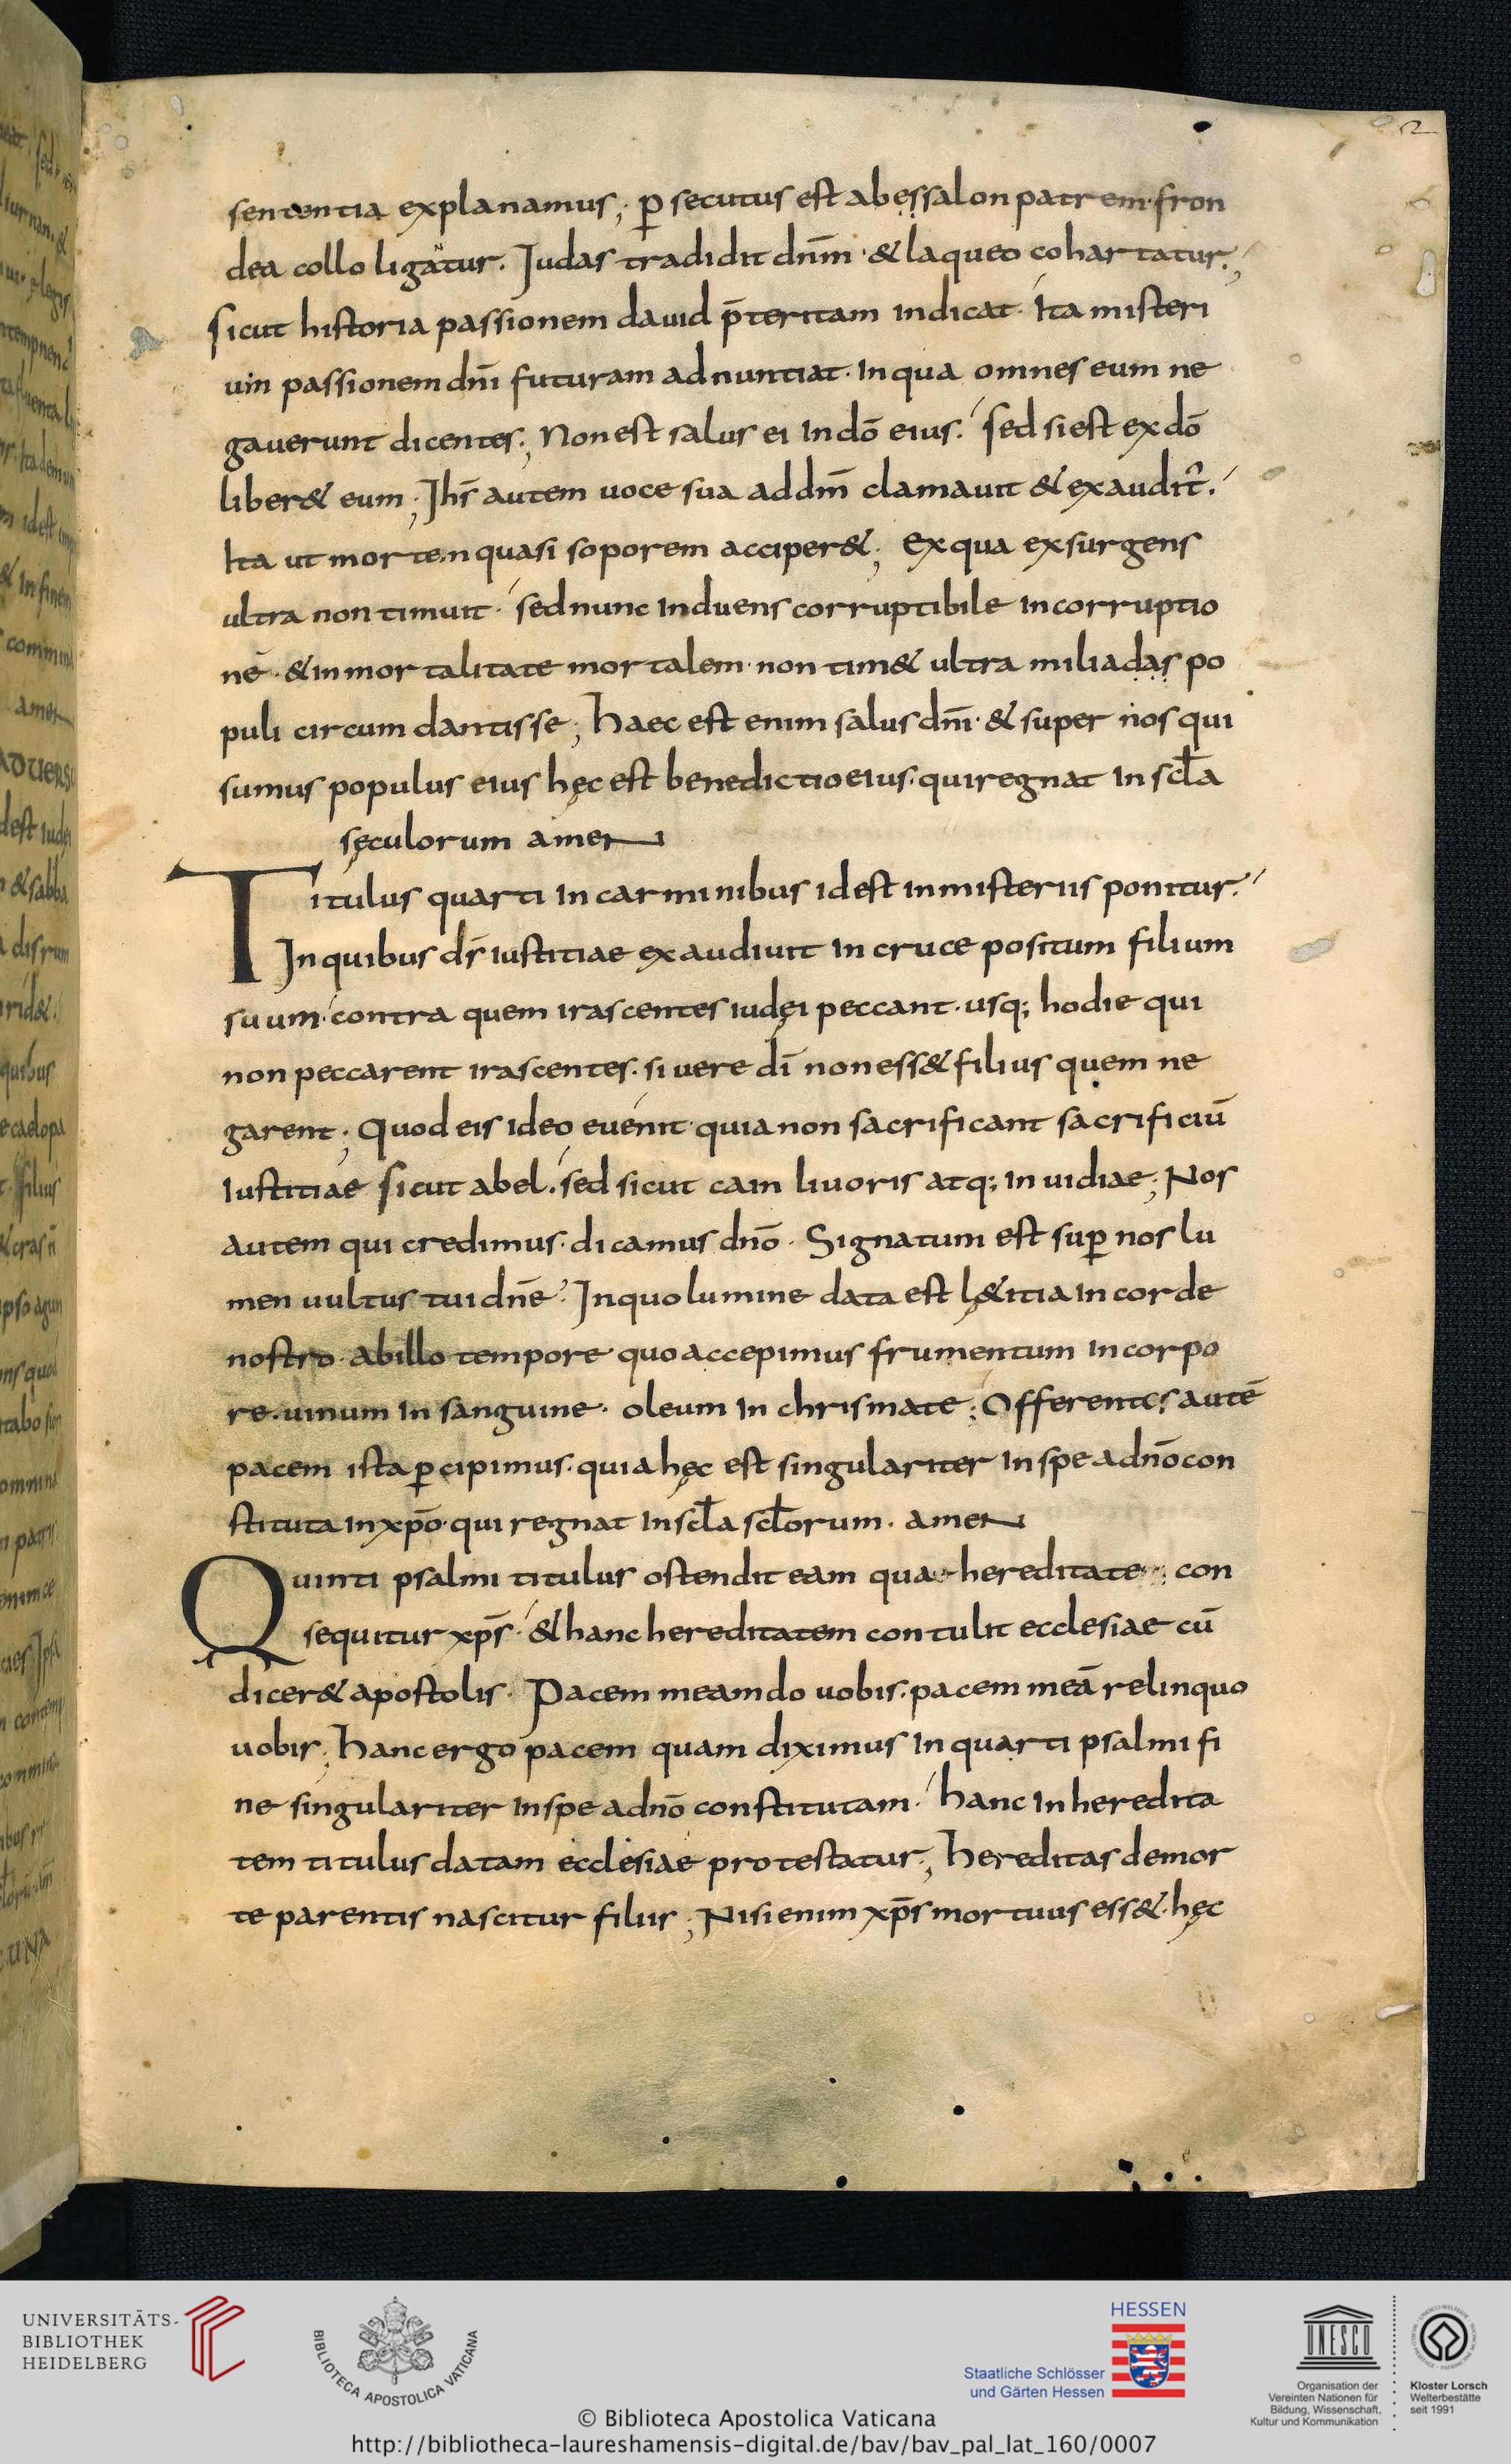 2
sententia explanamus; p̱ secutus est abessalon patrem· fron
dea collo ligatur. Judas tradidit dnm̄· & laqueo cohartatur.;
sicut historia passionem dauid p̄teritam indicat. Ita misteri
um passionem dnī futuram adnuntiat· In qua omnes eum ne
gauerunt dicentes; Non est salus ei in dō eius. sed si est ex dō
liber& eum; Jhs̄ autem uoce sua ad dnm̄ clamauit & exaudit̉.
Ita ut mortem quasi soporem acciper&; Ex qua exsurgens
ultra non timuit· sed nunc induens corruptibile incorruptio
nē· & inmortalitate mortalem· non tim& ultra miliadas po
puli circumdantis se; haec est enim salus dnī· & super nos qui
sumus populus eius hęc est benedictio eius· qui regnat in scl̄a
sęculorum amen
Titulus quarti in carminibus id est in misteriis ponitur.
Jn quibus ds̄ iustitiae exaudiuit in cruce positum filium
suum· contra quem irascentes iudęi peccant· usq; hodie qui
non peccarent irascentes· si uere dī non ess& filius quem ne
garent; Quod eis ideo euenit· quia non sacrificant sacrificiū
iustitiae sicut abel. sed sicut cain liuoris atq; inuidiae; Nos
autem qui credimus· dicamus dnō· Signatum est sup̱ nos lu
men uultus tui dnē· Jn quo lumine data est l&itia in corde
nostro· ab illo tempore quo accepimus frumentum in corpo
re· uinum in sanguine· oleum in chrismate; Offerentes autē
pacem ista p̱cipimus· quia hęc est singulariter in spe a dnō con
stituta in xp̄o· qui regnat in scl̄a scl̄orum. amen
Quinti psalmi titulus ostendit eam quae hereditate con
sequitur xp̄s· & hanc hereditatem contulit ecclesiae cū
dicer& apostolis· Pacem meam do uobis· pacem meā relinquo
uobis; hanc ergo pacem quam diximus in quarti psalmi fi
ne singulariter in spe a dnō constitutam· hanc in heredita
tem titulus datam ecclesiae protestatur; hereditas de mor
te parentis nascitur filiis; Nisi enim xp̄s mortuus ess&· hęc
UNIVERSITÄTS-
BIBLIOTHEK
HEIDELBERG
BIBLIOTECA APOSTOLICA VATICANA
HESSEN
Staatliche Schlösser
und Gärten Hessen
UNESCO
Organisation der
Vereinten Nationen für
Bildung, Wissenschaft,
Kultur und Kommunikation
Kloster Lorsch
Welterbestätte
seit 1991
© Biblioteca Apostolica Vaticana
http://bibliotheca-laureshamensis-digital.de/bav/bav_pal_lat_160/0007